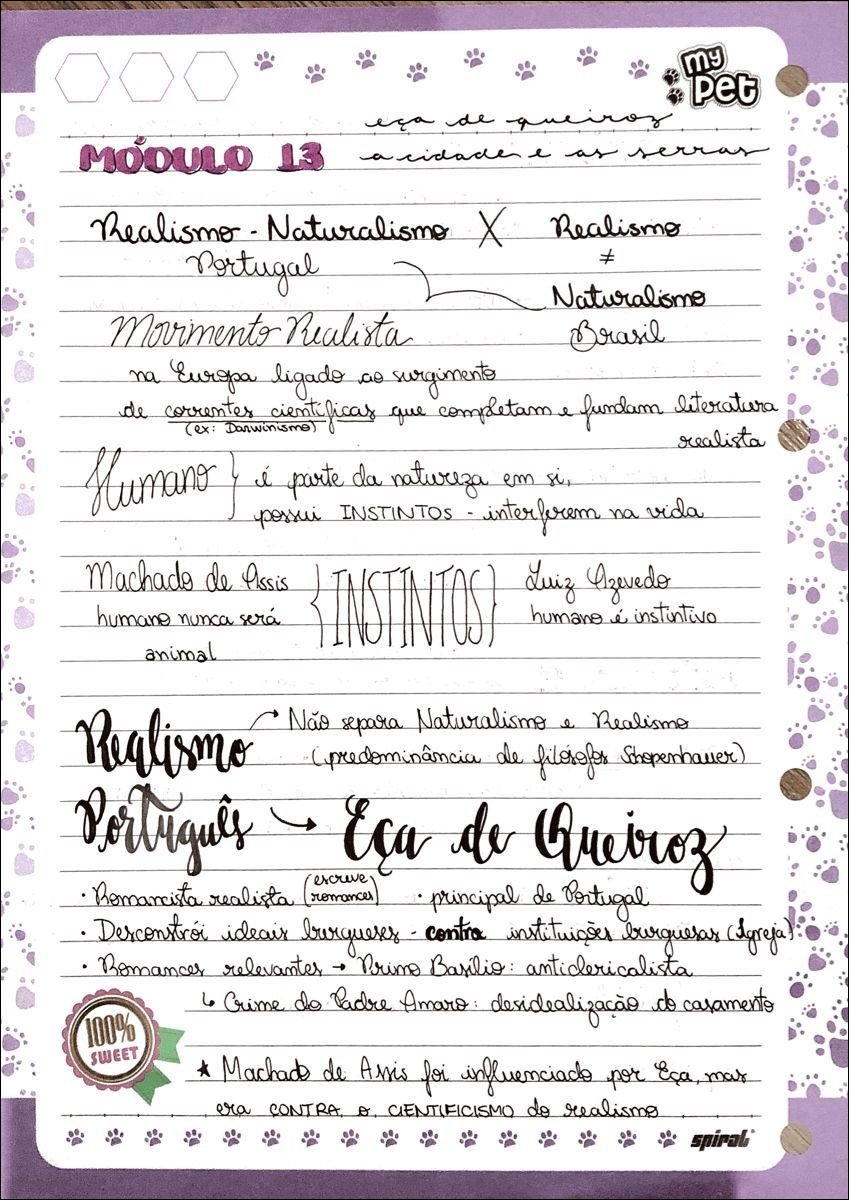 my
pet
eça de queiroz
MÓDULO 13 a cidade e as serras
Realismo - Naturalismo X Realismo
Portugal ≠
Naturalismo
Movimento Realista Brasil
na Europa ligado ao surgimento
de correntes científicas que completam e fundam literatura
(ex: Darwinismo) realista
Humano } é parte da natureza em si,
possui INSTINTOS - interferem na vida
Machado de Assis {INSTINTOS} Luiz Azevedo
humano nunca será humano é instintivo
animal
Realismo → Não separa Naturalismo e Realismo
(predominância de filósofos Shopenhauer)
Português → Eça de Queiroz
· Romancista realista (escreve romances) · principal de Portugal
· Desconstrói ideais burgueses - contra instituições burguesas (Igreja)
· Romances relevantes → Primo Basílio: anticlericalista
↳ Crime do Padre Amaro: desidealização do casamento
100%
SWEET
★ Machado de Assis foi influenciado por Eça, mas
era CONTRA O CIENTIFICISMO do realismo
spiral